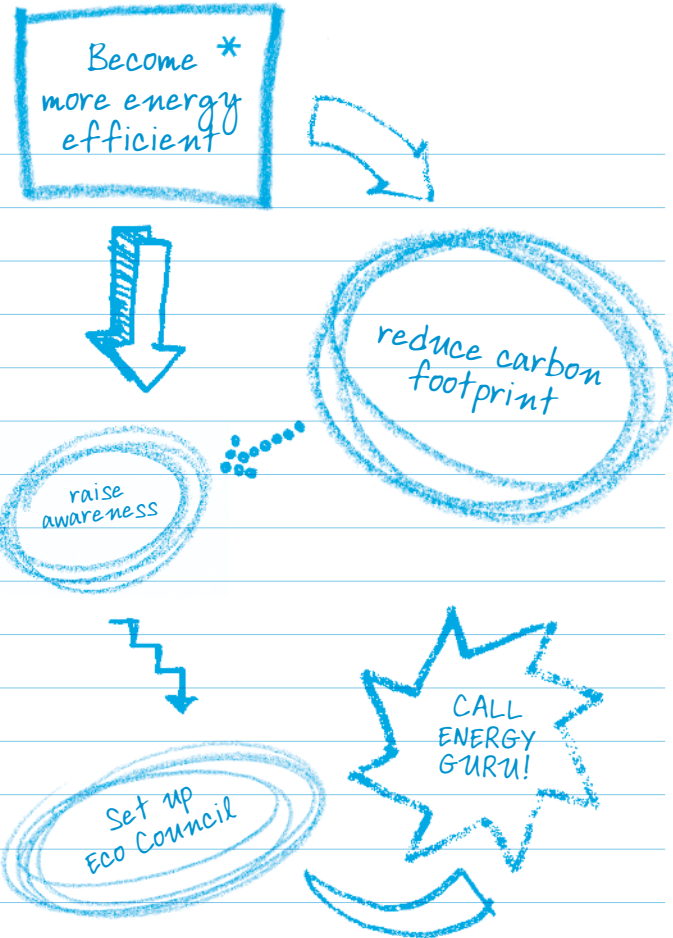 Become *
more energy
efficient
reduce carbon
footprint
raise
awareness
CALL
ENERGY
GURU!
Set up
Eco Council